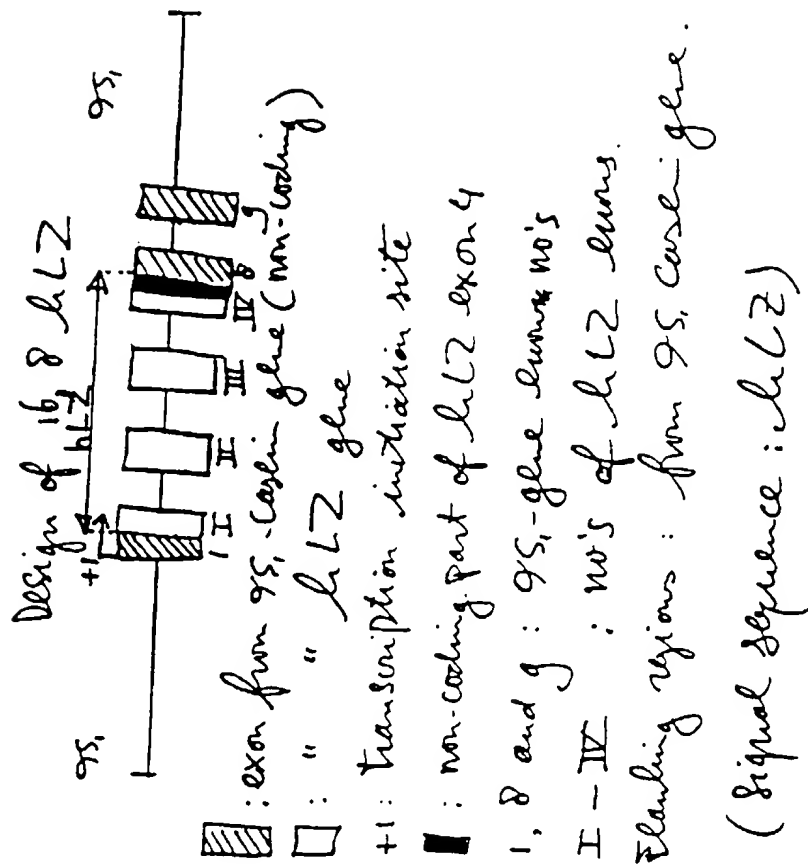 Design of 16, 8 hLZ
hLZ
+1
αS₁
αS₁
1 I II III IV 8 9
: exon from αS₁-casein gene (non-coding)
: " " hLZ gene
+1: transcription initiation site
: non-coding part of hLZ exon 4
1, 8 and 9 : αS₁-gene exons no's
I - IV : no's of hLZ exons.
Flanking regions : from αS₁ casein gene.
(Signal sequence : hLZ)